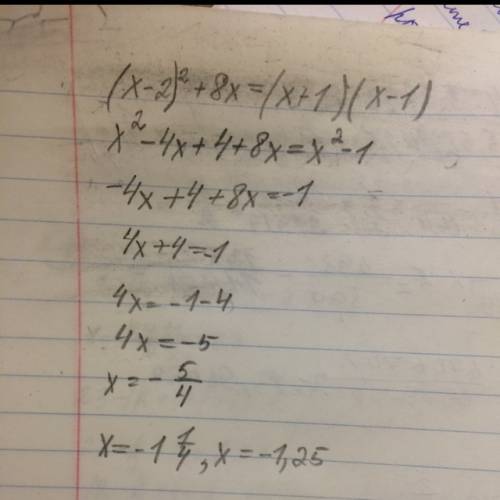 (x-2)²+8x=(x+1)(x-1)
x²-4x+4+8x=x²-1
-4x+4+8x=-1
4x+4=-1
4x=-1-4
4x=-5
x=-5/4
x=-1 1/4, x=-1,25